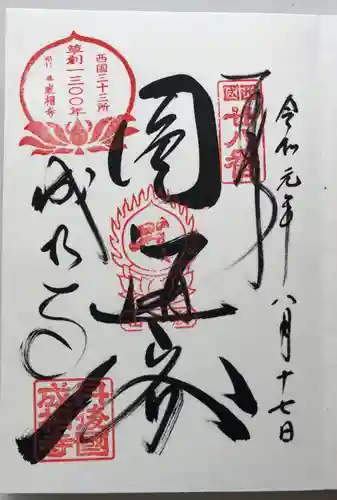 令和元年八月十七日
奉拝
西国二十八番
圓通閣
西国三十三所
草創一三〇〇年
成相寺
丹後國
成相寺